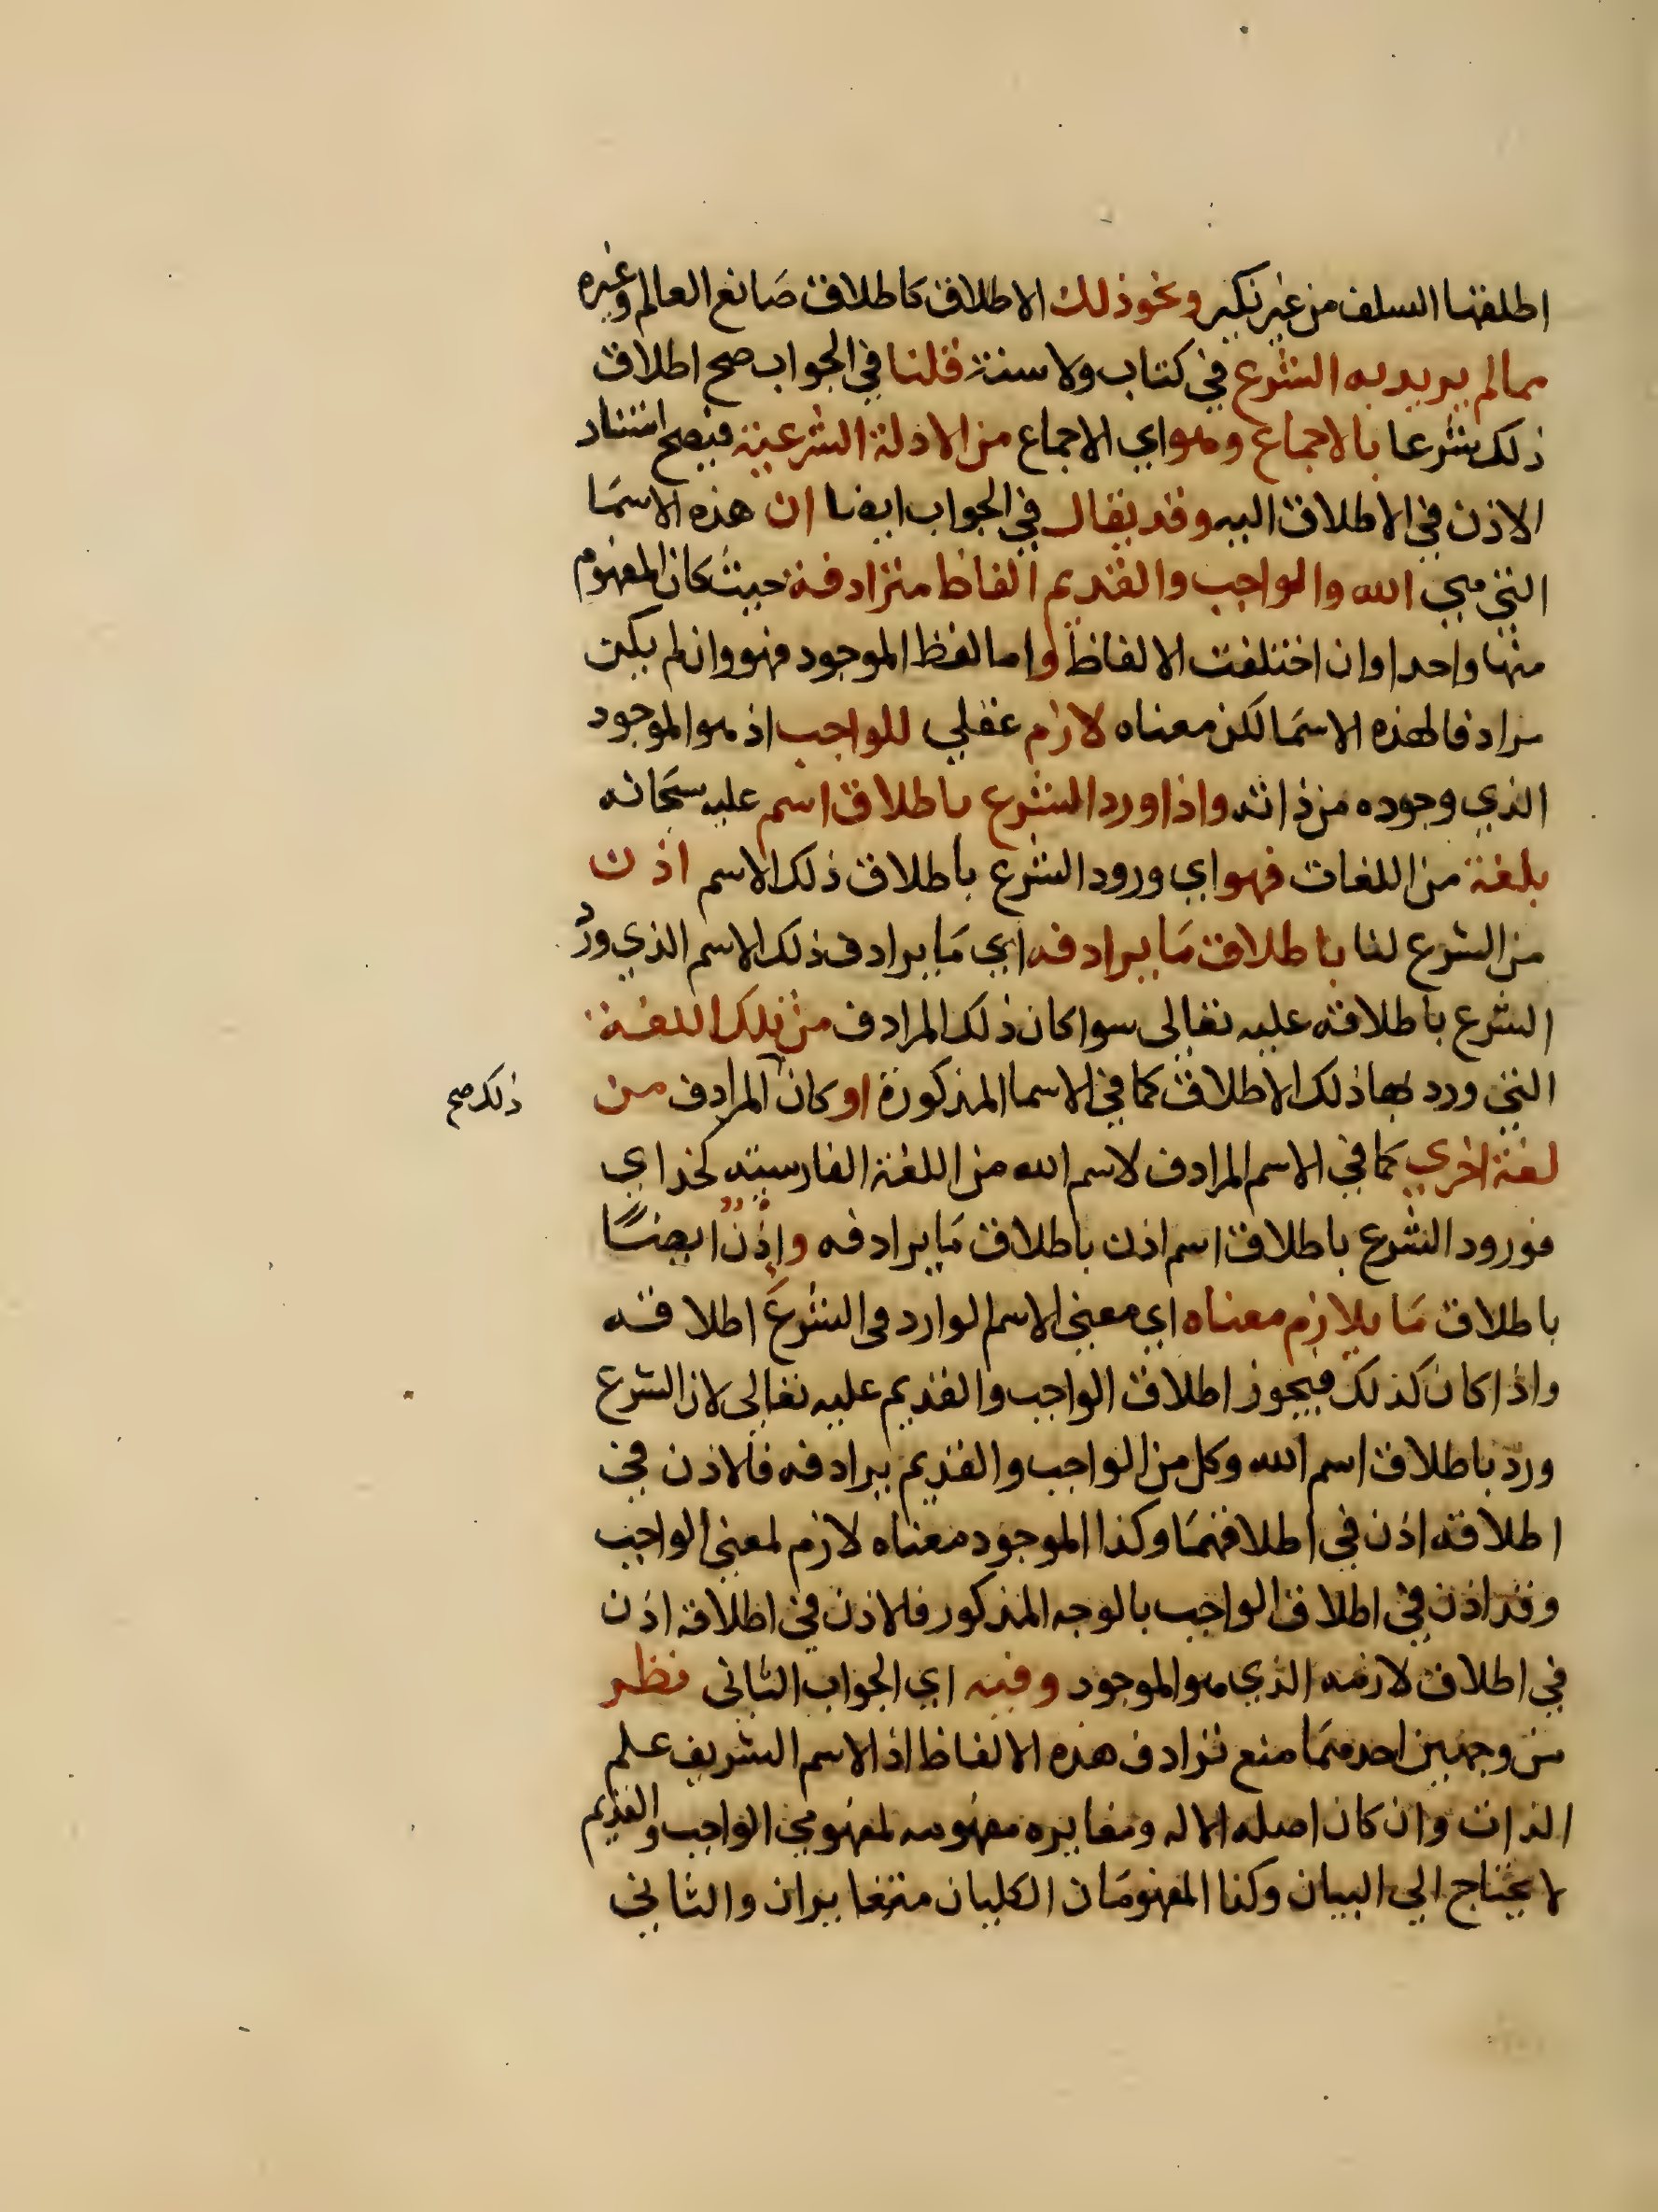 اطلقها السلف من غير نكير ونحو ذلك الاطلاق كاطلاق صانع العالم وغيره
مما لم يريد به الشرع في كتاب ولا سنة قلنا في الجواب صح اطلاق
ذلك شرعا بالاجماع وهو اي الاجماع من الادلة الشرعية فيصح استناد
الاذن في الاطلاق اليه وقد يقال في الجواب ايضا ان هذه الاسما
التي هي الله والواجب والقديم الفاظ مترادفة حيث كان المفهوم
منها واحدا وان اختلفت الالفاظ واما لفظ الموجود فهو وان لم يكن
مرادفا لهذه الاسما لكن معناه لازم عقلي للواجب اذ هو الموجود
الذي وجوده من ذاته واذا ورد الشرع باطلاق اسم عليه سبحانه
بلغة من اللغات فهو اي ورود الشرع باطلاق ذلك الاسم اذن
من الشرع لنا باطلاق ما يرادفه اي ما يرادف ذلك الاسم الذي ورد
الشرع باطلاقه عليه تعالى سوا كان ذلك المرادف من تلك اللغة
التي ورد بها ذلك الاطلاق كما في الاسما المذكورة او كان المرادف من
ذلك صح
لغة اخري كما في الاسم المرادف لاسم الله من اللغة الفارسية كخداي
فورود الشرع باطلاق اسم اذن باطلاق ما يرادفه واذن ايضا
باطلاق ما يلازم معناه اي معني الاسم الوارد في الشرع اطلاقه
واذا كان كذلك فيجوز اطلاق الواجب والقديم عليه تعالى لان الشرع
ورد باطلاق اسم الله وكل من الواجب والقديم يرادفه فالاذن في
اطلاقه اذن في اطلاقهما وكذا الموجود معناه لازم لمعني الواجب
وقد اذن في اطلاق الواجب بالوجه المذكور فالاذن في اطلاقه اذن
في اطلاق لازمه الذي هو الموجود وفيه اي الجواب الثاني نظر
من وجهين احدهما منع ترادف هذه الالفاظ اذ الاسم الشريف علم
الذات وان كان اصله الاله ومغايره مفهومه لمفهومي الواجب والقديم
لا يحتاج الي البيان وكذا المفهومان الكليان متغايران والثاني